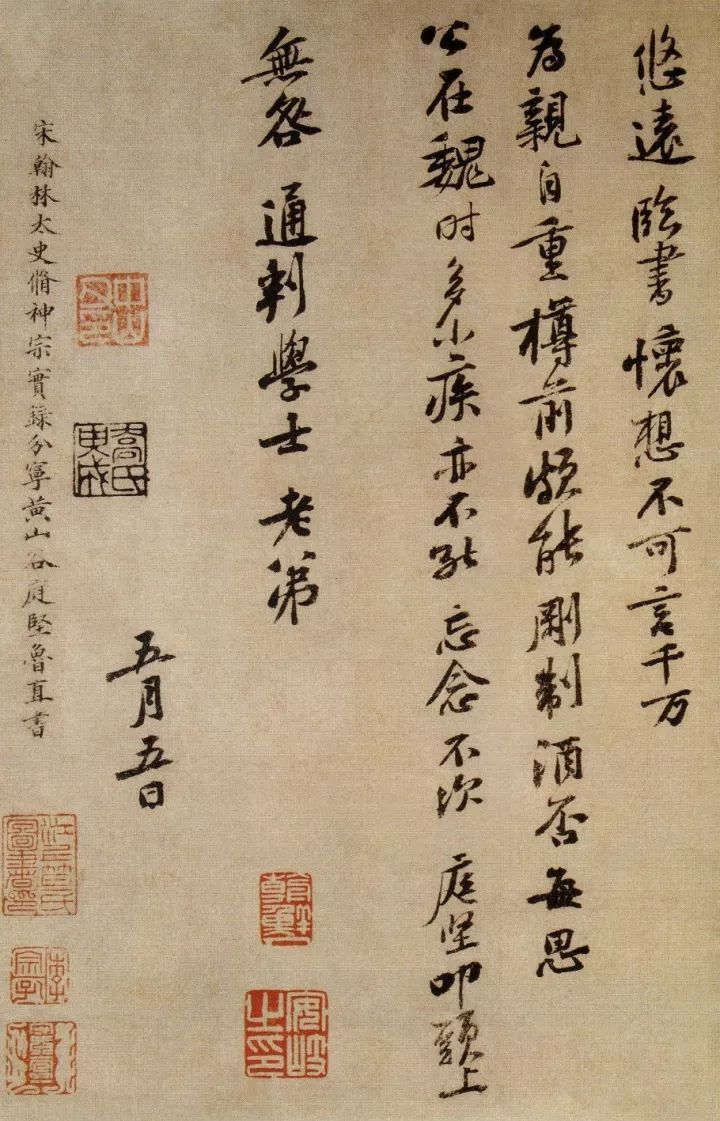 悠遠臨書懷想不可言千万
為親自重樽前頗能剛制酒否每思
公在魏时多小疾亦不能忘念不次 庭坚叩頭上
無咎 通判學士 老弟
五月五日
宋翰林太史脩神宗實録分寧黃山谷庭堅魯直書